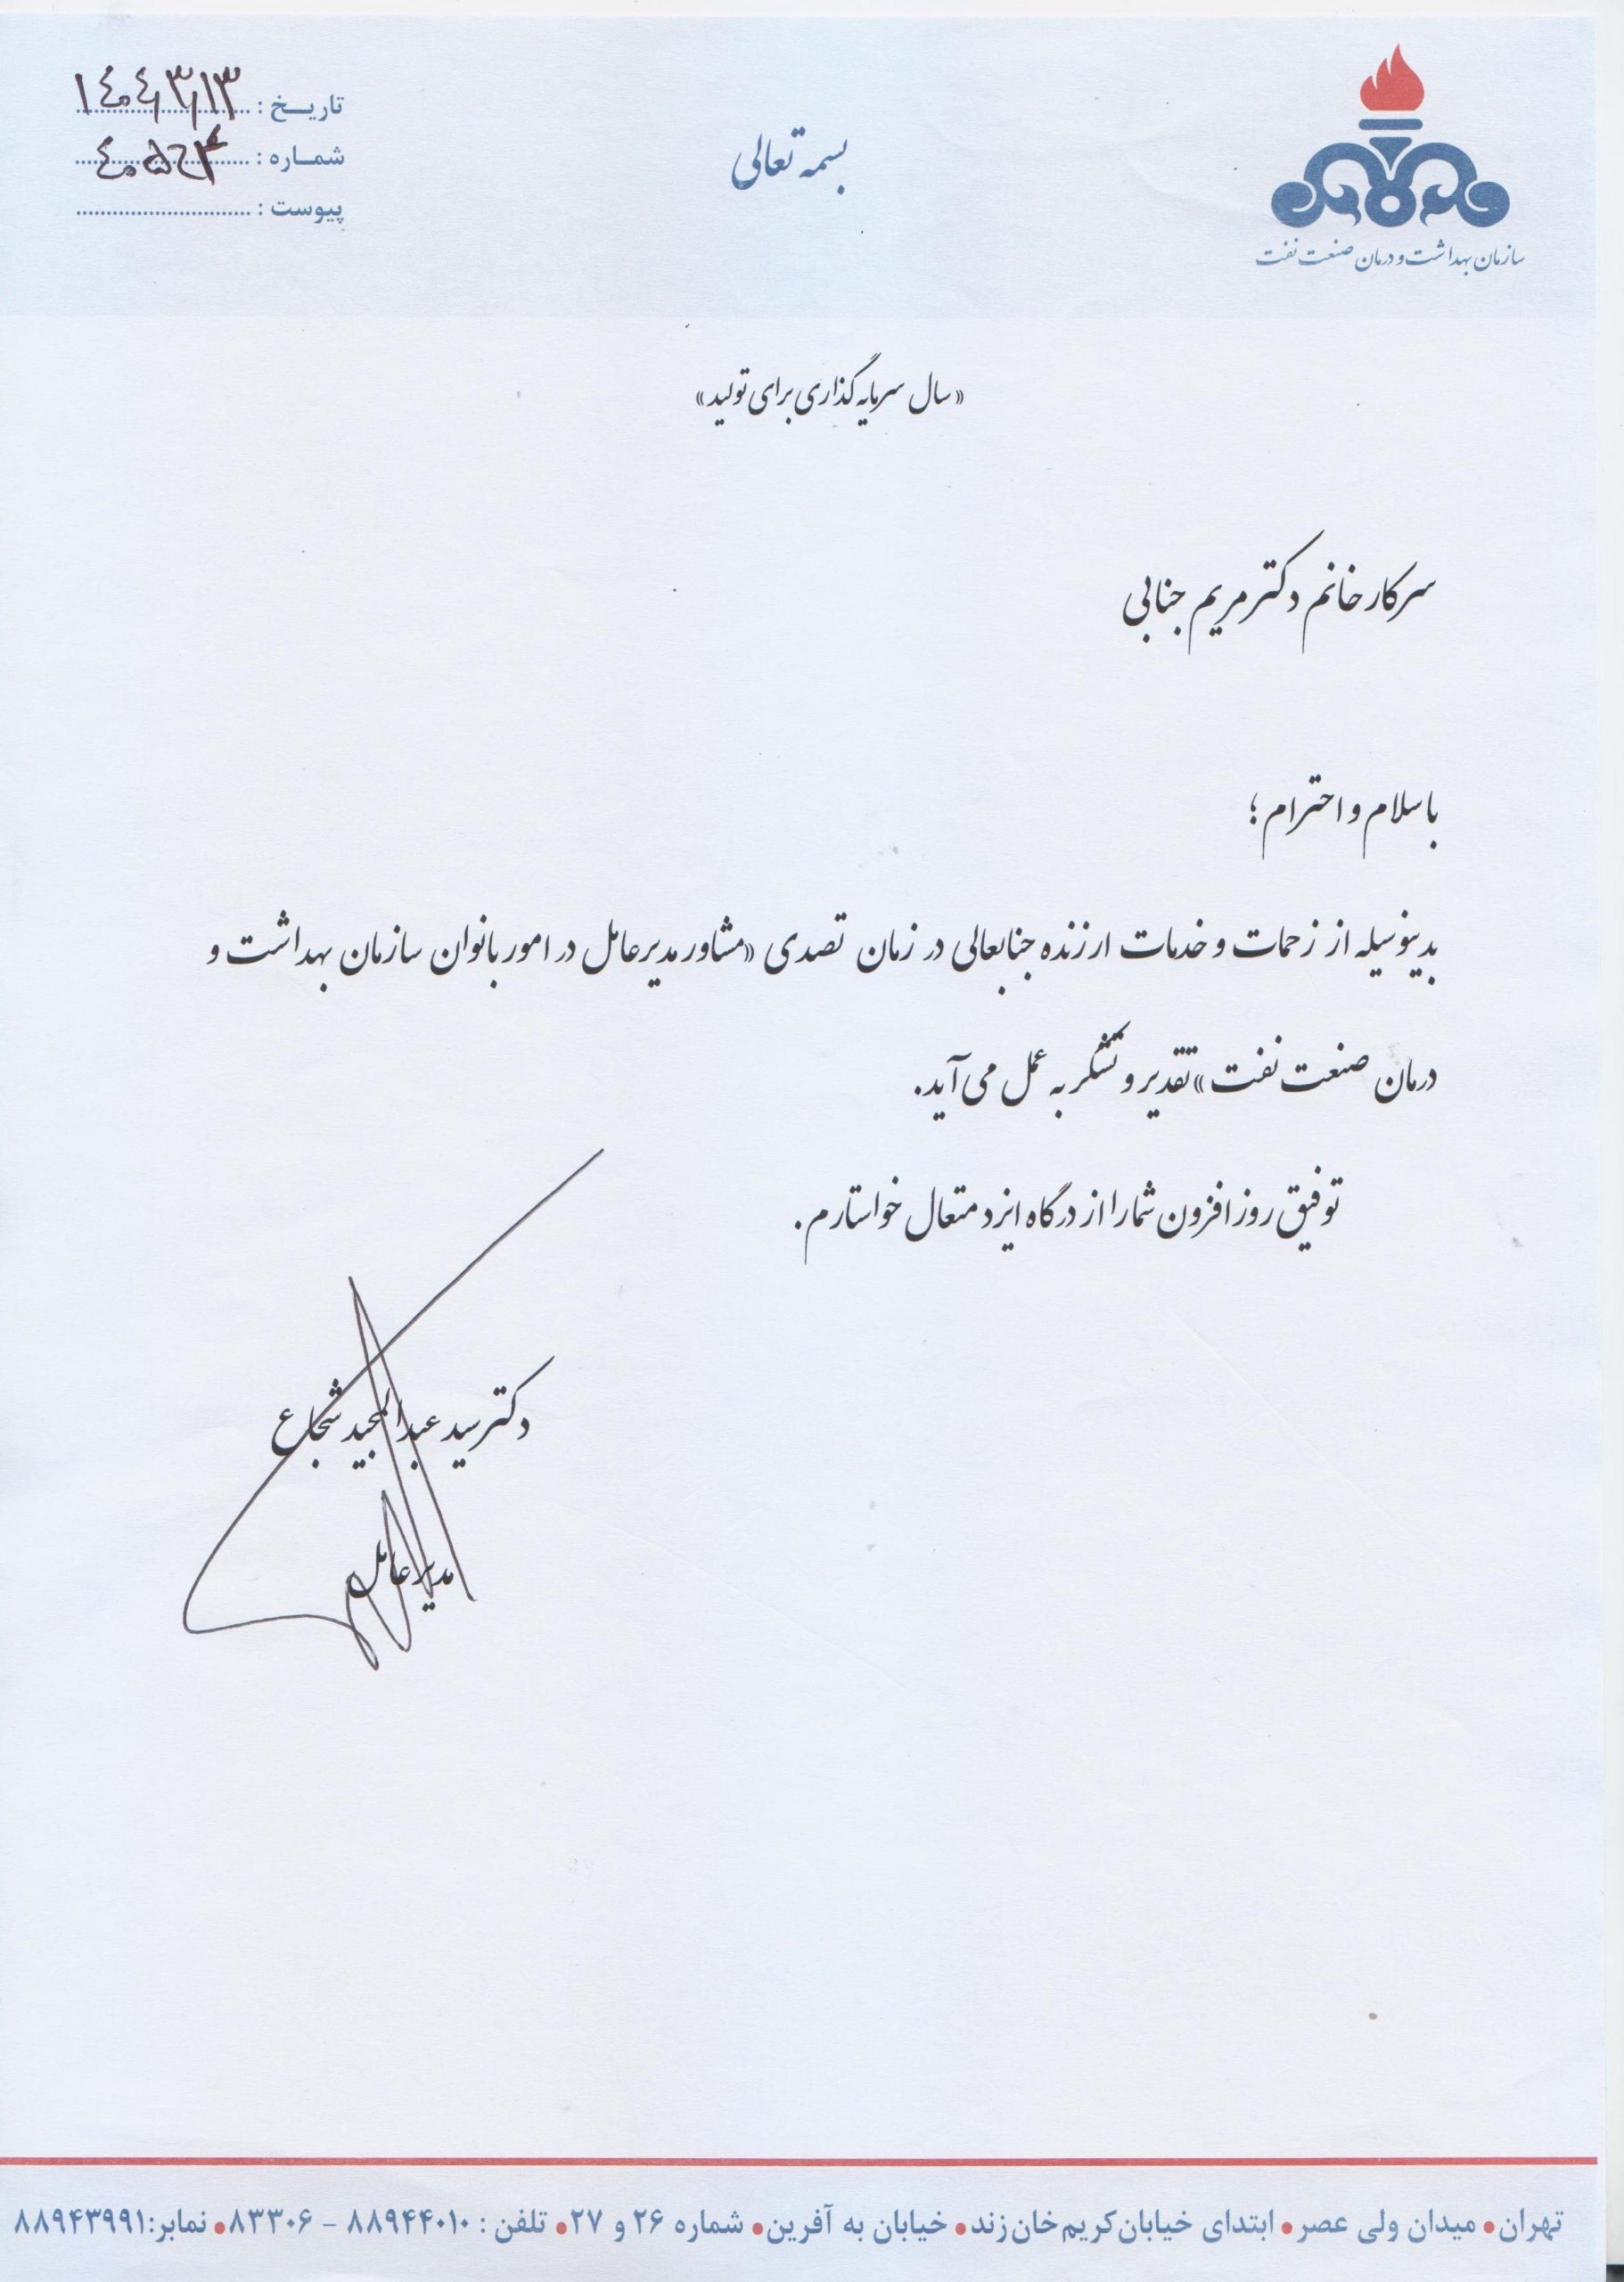 بسمه تعالی
سازمان بهداشت و درمان صنعت نفت
تاریخ : ۱۴۰۴/۳/۱۳
شماره :
پیوست :
«سال سرمایه گذاری برای تولید»
سرکار خانم دکتر مریم جنابی
با سلام و احترام ؛
بدینوسیله از زحمات و خدمات ارزنده جنابعالی در زمان تصدی «مشاور مدیرعامل در امور بانوان سازمان بهداشت و
درمان صنعت نفت» تقدیر و تشکر به عمل می آید.
توفیق روز افزون شما را از درگاه ایزد متعال خواستارم.
دکتر سید عبدالمجید شجاع
مدیرعامل
تهران • میدان ولی عصر • ابتدای خیابان کریم خان زند • خیابان به آفرین • شماره ۲۶ و ۲۷ • تلفن : ۸۸۹۴۴۰۱۰ - ۸۳۳۰۶ • نمابر: ۸۸۹۴۳۹۹۱